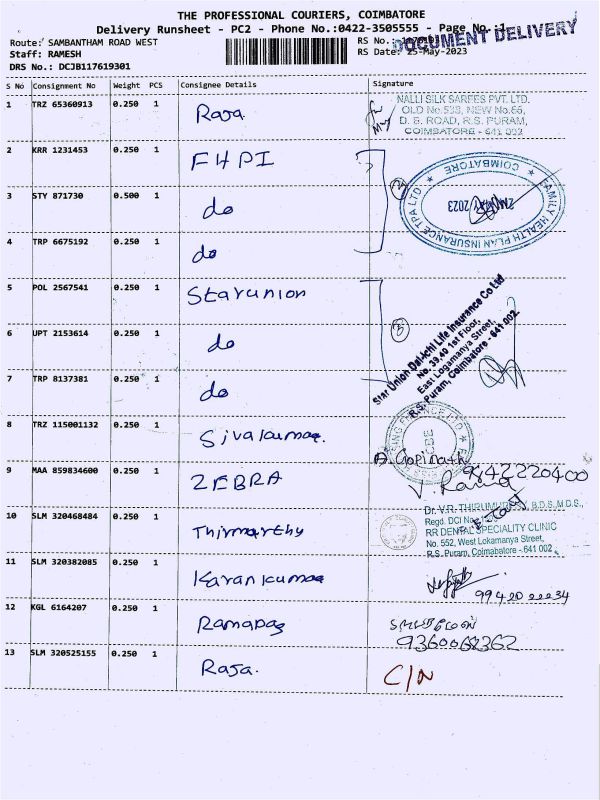 THE PROFESSIONAL COURIERS, COIMBATORE
Delivery Runsheet - PC2 - Phone No.:0422-3505555 - Page No.:1
DOCUMENT DELIVERY
Route: SAMBANTHAM ROAD WEST
RS No.:
Staff: RAMESH
RS Date: 25-May-2023
DRS No.: DCJB117619301
S No Consignment No Weight PCS Consignee Details Signature
1 TRZ 65360913 0.250 1 Raja
NALLI SILK SAREES PVT. LTD.
OLD No.538, NEW No.66,
D. B. ROAD, R.S. PURAM,
COIMBATORE - 641 002
2 KRR 1231453 0.250 1 FHPI
3 STY 871730 0.500 1 do
2
FAMILY HEALTH PLAN INSURANCE TPA LTD
COIMBATORE
MAY 2023
4 TRP 6675192 0.250 1 do
5 POL 2567541 0.250 1 Starunion
6 UPT 2153614 0.250 1 do
3
Star Union Dai-ichi Life Insurance Co Ltd
No. 39,40 1st Floor,
East Logamanya Street,
R.S. Puram, Coimbatore - 641 002
7 TRP 8137381 0.250 1 do
8 TRZ 115001132 0.250 1 Sivakumar.
CBE
A. Gopinath
9442220400
9 MAA 859834600 0.250 1 ZEBRA
V.
10 SLM 320468484 0.250 1 Thirmurthy
Dr. V.R. THIRUMURTHY, B.D.S, M.D.S.,
Regd. DCI No
RR DENTAL SPECIALITY CLINIC
No. 552, West Lokamanya Street,
R.S. Puram, Coimbatore - 641 002
11 SLM 320382085 0.250 1 Karankumar
99420 22234
12 KGL 6164207 0.250 1 Ramadas
9360068362
13 SLM 320525155 0.250 1 Raja.
C/N